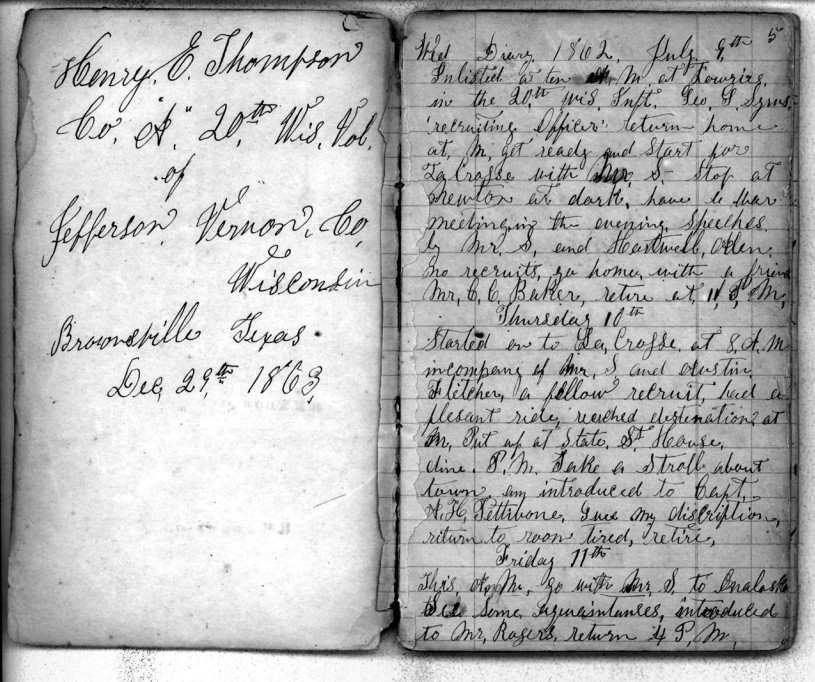 Henry, E. Thompson
Co, "A," 20,th Wis, Vol,
of
Jefferson, Vernon, Co,
Wisconsin
Brownsville Texas
Dec, 29,th 1863,
5
Wed Diary, 1862, July 9,th
Inlisted a ten M at
in the 20,th Wis, Inft, Geo,
recruiting Officer return home
at, M, get ready and Start for
La Crosse with Mr, S- Stop at
Newton at dark, have a War
meeting in the evening, Speeches
by Mr, S, and Hartwell, Allen,
no recruits, go home, with a friend
Mr, C, C, Baker, retire at, 11, P, M,
Thursday 10th
Started on to La, Crosse, at 8, A, M
in company of Mr, S and Austin,
Fletcher, a fellow recruit, had a
plesant ride, reached destination, at
M, Put up at State, St, House,
dine, P, M, Take a Stroll about
town, am introduced to Capt,
A, H, Pettibone, Gives my discription,
riturn to room tired, retire,
Friday 11th
This, A, M, go with Mr, S to Onalaska
to See Some aquaintances, introduced
to Mr, Rogers, return 4 P, M,